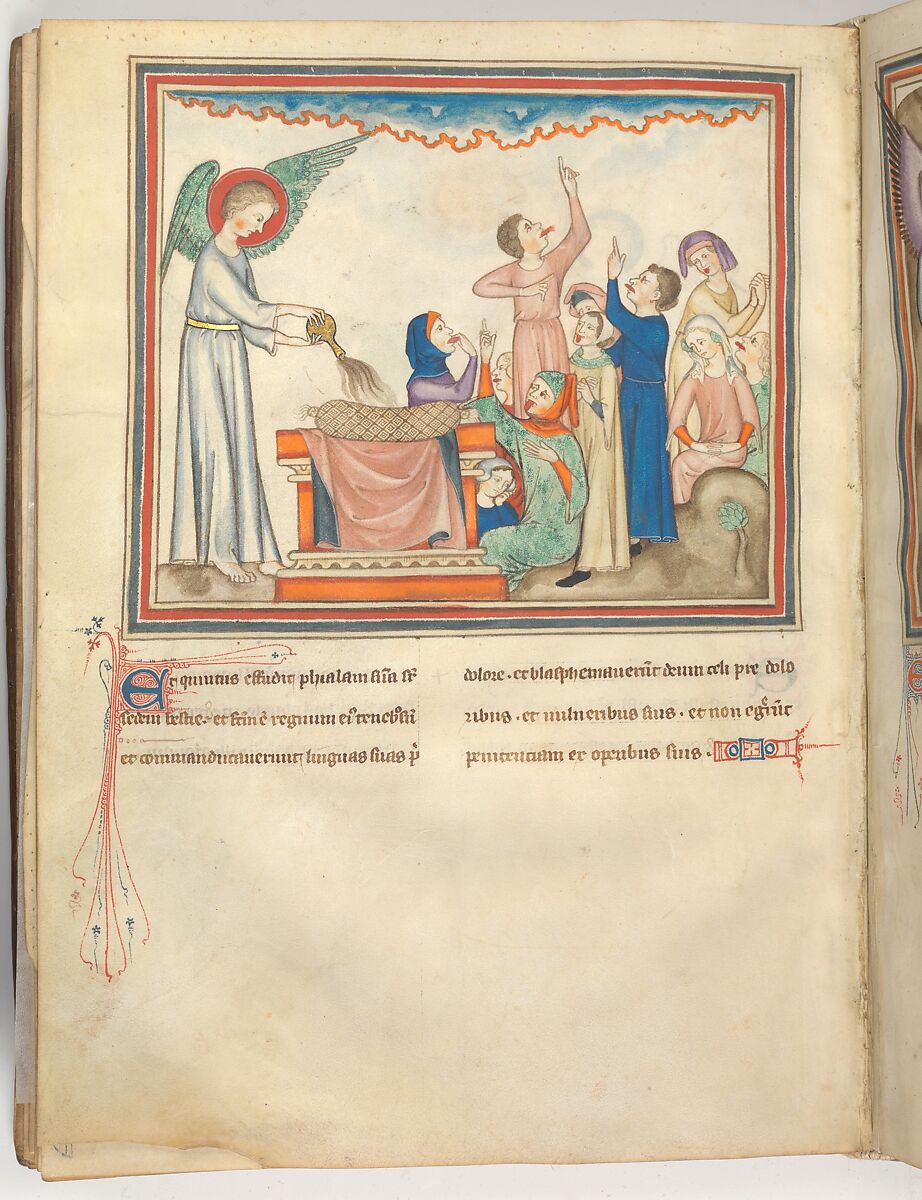 Et quintus effudit phialam suā sr̄
sedem bestie· et fcm̄ ē regnum eiꝰ tenebrosū
et commanducauerunt linguas suas p̄
dolore· et blasphemauerūt deum celi pre dolo
ribus · et uulneribus suis · et non egerūt
penitentiam ex operibus suis ·